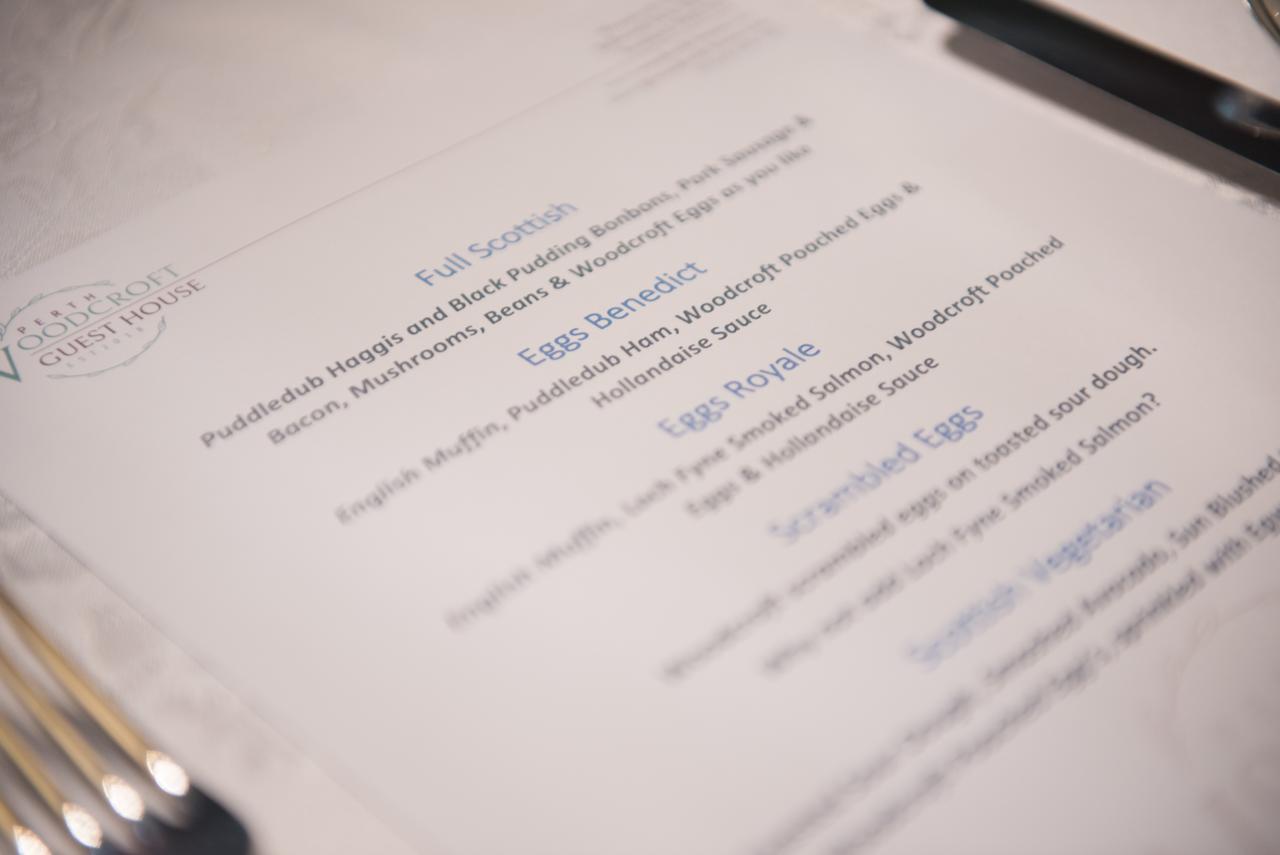 PERTH
WOODCROFT
GUEST HOUSE
Full Scottish
Puddledub Haggis and Black Pudding Bonbons, Pork Sausage &
Bacon, Mushrooms, Beans & Woodcroft Eggs as you like
Eggs Benedict
English Muffin, Puddledub Ham, Woodcroft Poached Eggs &
Hollandaise Sauce
Eggs Royale
English Muffin, Loch Fyne Smoked Salmon, Woodcroft Poached
Eggs & Hollandaise Sauce
Scrambled Eggs
Woodcroft scrambled eggs on toasted sour dough.
Why not add Loch Fyne Smoked Salmon?
Scottish Vegetarian
Avocado, Sun Blushed
sprinkled with